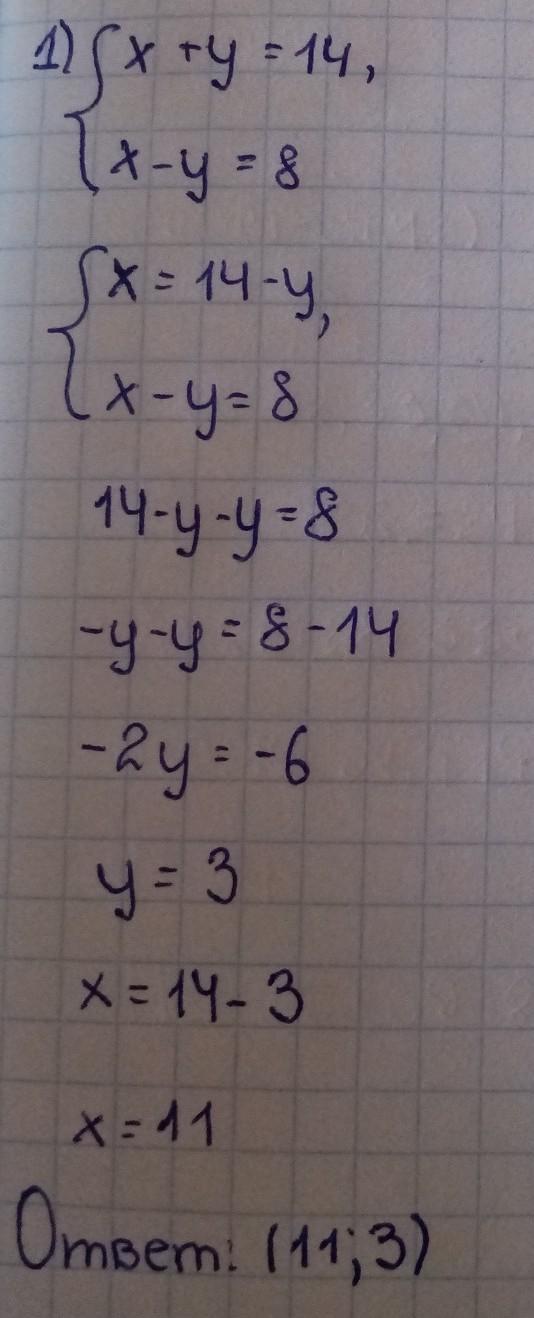 1) { x + y = 14,
x - y = 8
{ x = 14 - y,
x - y = 8
14 - y - y = 8
-y - y = 8 - 14
-2y = -6
y = 3
x = 14 - 3
x = 11
Ответ: (11; 3)